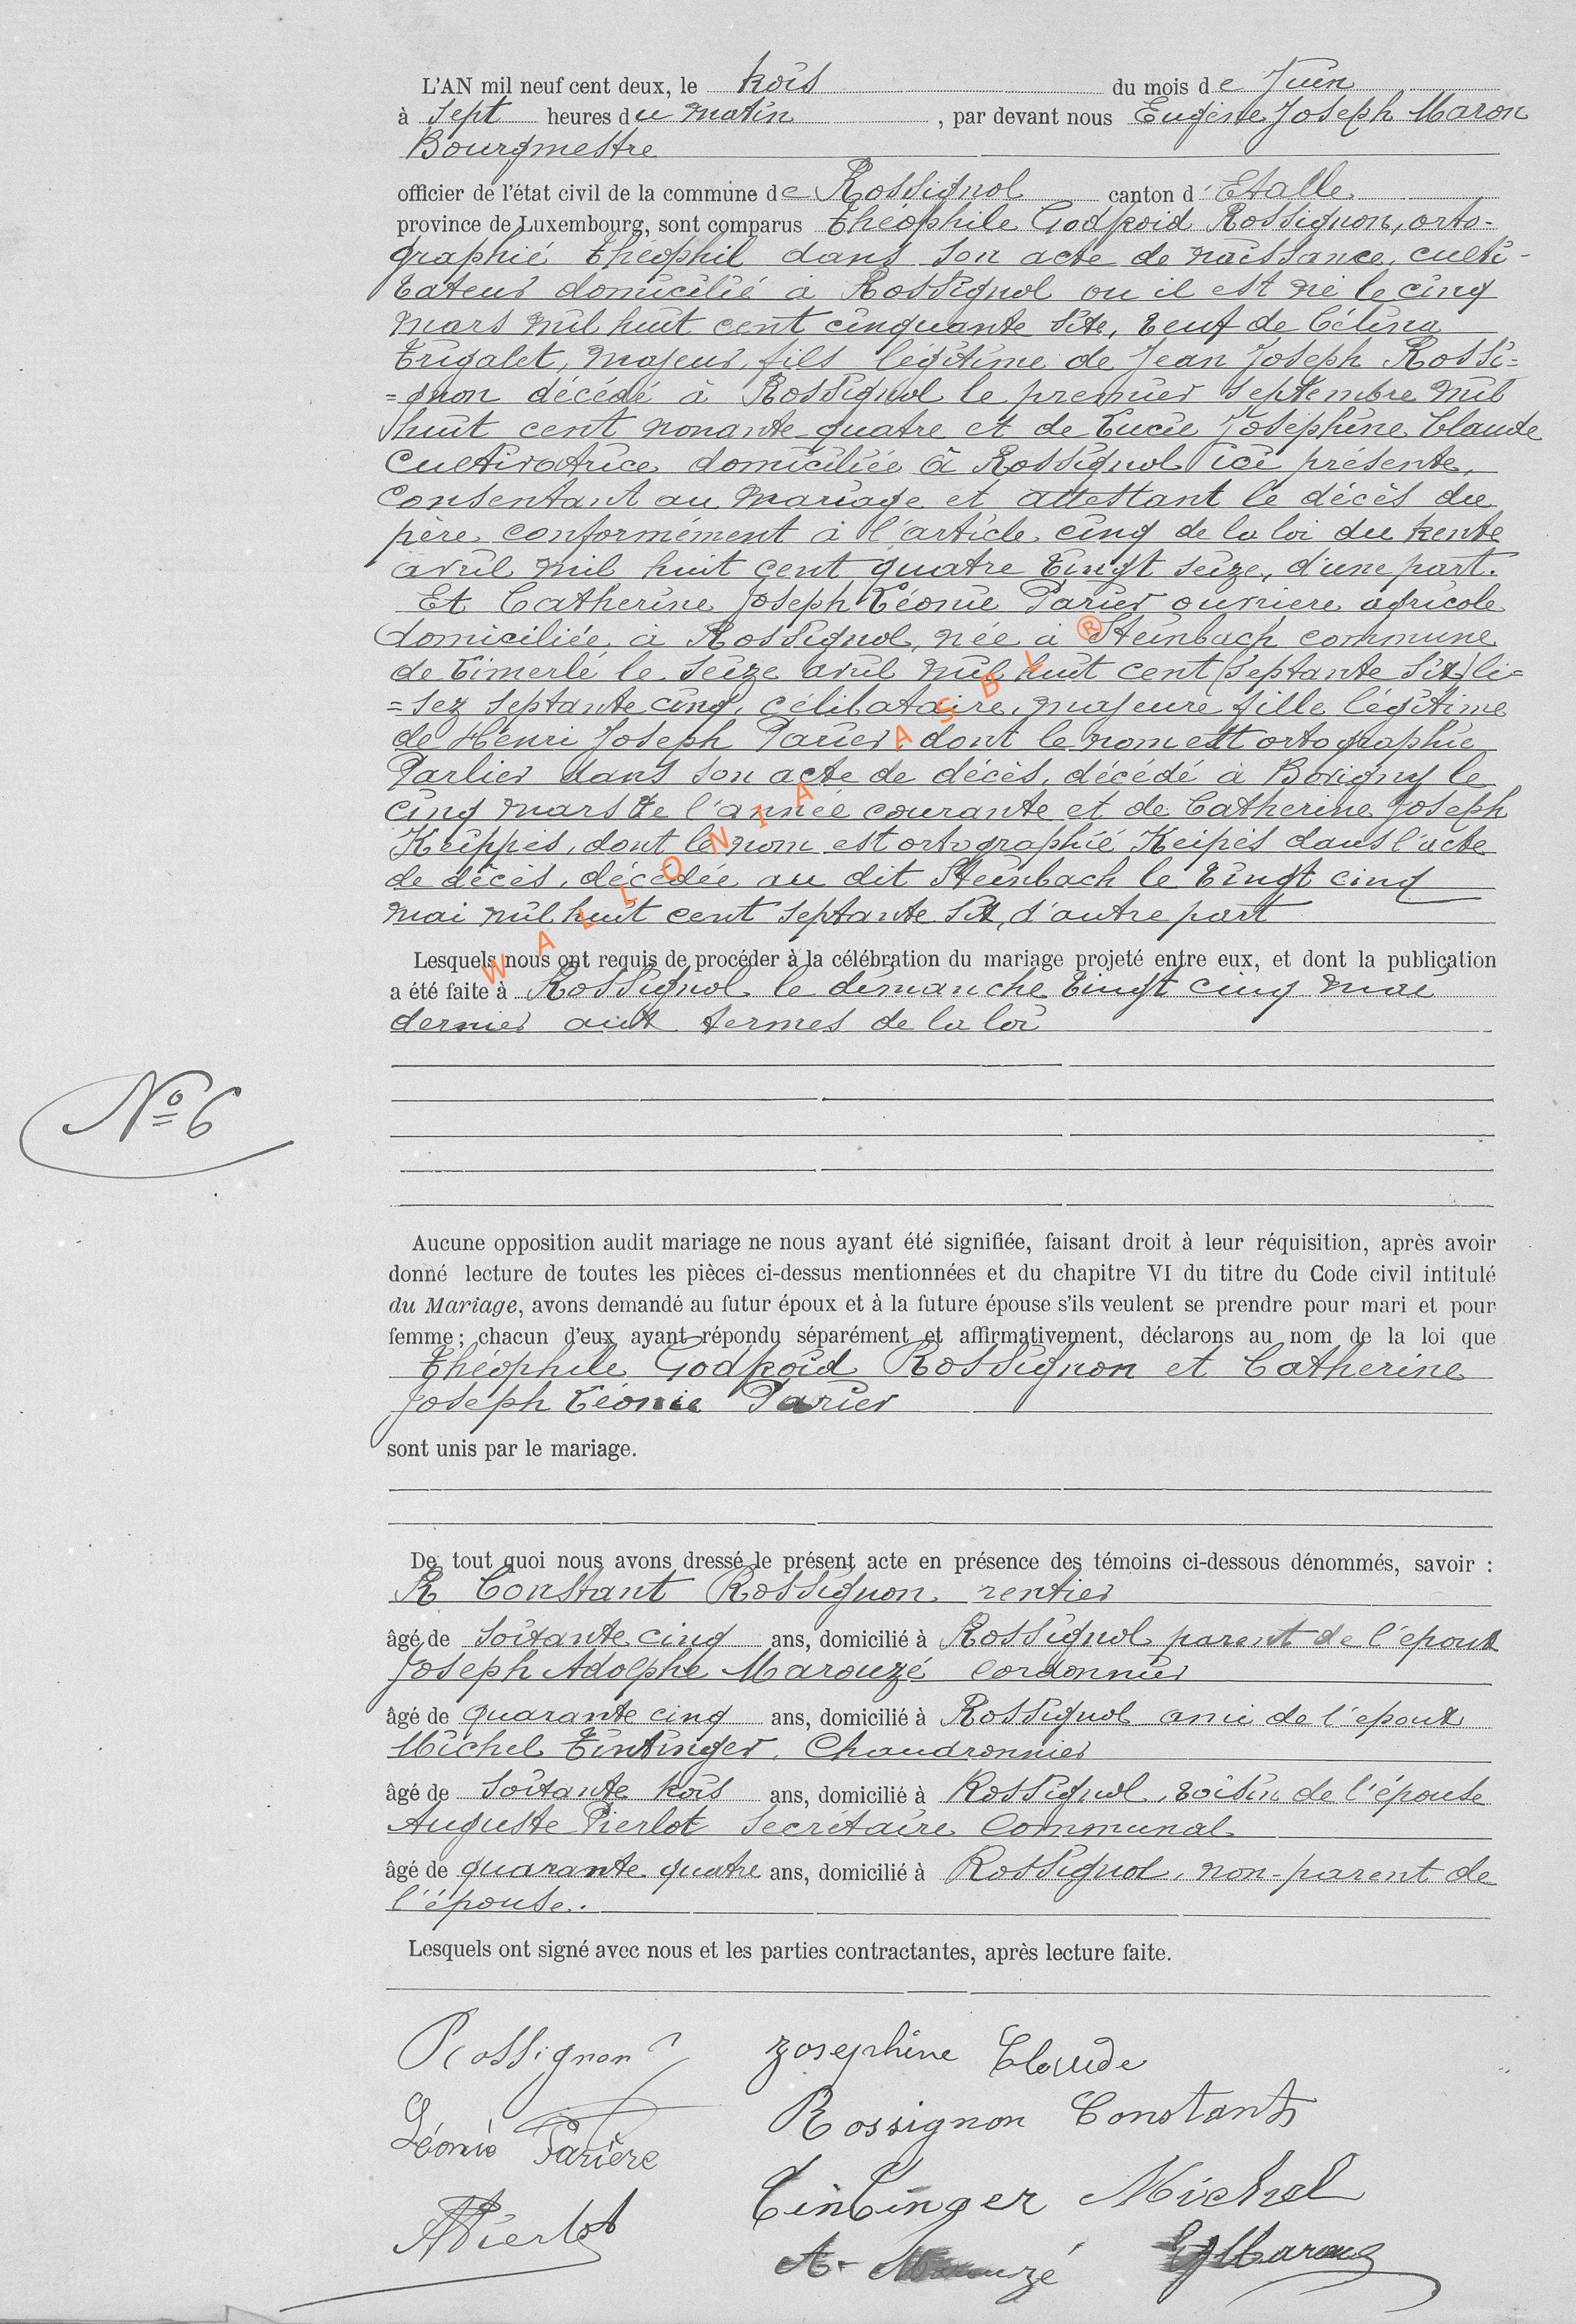 L'AN mil neuf cent deux, le trois du mois de Juin
à sept heures du matin, par devant nous Eugène Joseph Maron
Bourgmestre
officier de l'état civil de la commune de Rossignol canton d'Etalle
province de Luxembourg, sont comparus Théophile Godfroid Rossignon, orto-
graphié Théophil dans son acte de naissance, culti-
vateur domicilié à Rossignol ou il est né le cinq
mars mil huit cent cinquante six, veuf de Célina
Trigalet, majeur, fils légitime de Jean Joseph Rossi=
=gnon décédé à Rossignol le premier septembre mil
huit cent nonante quatre et de Lucie Joséphine Claude
Cultivatrice domiciliée à Rossignol ici présente,
Consentant au mariage et attestant le décès du
père conformément à l'article cinq de la loi du trente
avril mil huit cent quatre vingt seize, d'une part.
Et Catherine Joseph Léonie Parier ouvriere agricole
domiciliée à Rossignol, née à Steinbach commune
de Limerlé le seize avril mil huit cent (septante six) li=
=sez septante cinq, célibataire, majeure fille légitime
de Henri Joseph Parier dont le nom est ortographié
Parlier dans son acte de décès, décédé à Bovigny le
cinq mars de l'année courante et de Catherine Joseph
Keippes, dont le nom est ortographié Keipes dans l'acte
de décès, décédée au dit Steinbach le vingt cinq
mai mil huit cent septante six, d'autre part
Lesquels nous ont requis de procéder à la célébration du mariage projeté entre eux, et dont la publication
a été faite à Rossignol le dimanche vingt cinq mai
dernier aux termes de la loi
Nº 6
Aucune opposition audit mariage ne nous ayant été signifiée, faisant droit à leur réquisition, après avoir
donné lecture de toutes les pièces ci-dessus mentionnées et du chapitre VI du titre du Code civil intitulé
du Mariage, avons demandé au futur époux et à la future épouse s'ils veulent se prendre pour mari et pour
femme ; chacun d'eux ayant répondu séparément et affirmativement, déclarons au nom de la loi que
Théophile Godfroid Rossignon et Catherine
Joseph Léonie Parier
sont unis par le mariage.
De tout quoi nous avons dressé le présent acte en présence des témoins ci-dessous dénommés, savoir :
R Constant Rossignon rentier
âgé de soixante cinq ans, domicilié à Rossignol parent de l'époux
Joseph Adolphe Marouzé Cordonnier
âgé de quarante cinq ans, domicilié à Rossignol ami de l'époux
Michel Tintinger, Chaudronnier
âgé de soixante trois ans, domicilié à Rossignol, voisin de l'épouse
Auguste Pierlot Secrétaire Communal
âgé de quarante quatre ans, domicilié à Rossignol, non-parent de
l'épouse.
Lesquels ont signé avec nous et les parties contractantes, après lecture faite.
Rossignon T Josephine Claude
Léonie Parière Rossignon Constant
APierlot Tintinger Michel
A. Marouzé EJMaron
WALLONIA ASBL ®